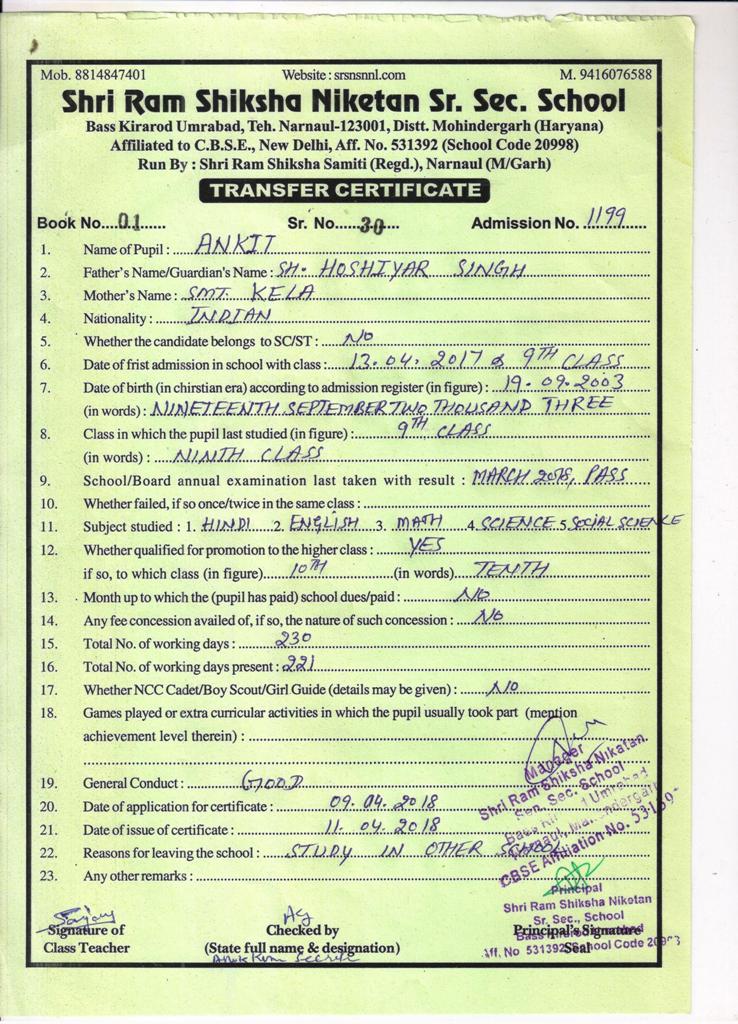 Mob. 8814847401 Website : srsnsnnl.com M. 9416076588
Shri Ram Shiksha Niketan Sr. Sec. School
Bass Kirarod Umrabad, Teh. Narnaul-123001, Distt. Mohindergarh (Haryana)
Affiliated to C.B.S.E., New Delhi, Aff. No. 531392 (School Code 20998)
Run By : Shri Ram Shiksha Samiti (Regd.), Narnaul (M/Garh)
TRANSFER CERTIFICATE
Book No....01...... Sr. No.....30.... Admission No. 1199
1. Name of Pupil : ANKIT
2. Father's Name/Guardian's Name : SH. HOSHIYAR SINGH
3. Mother's Name : SMT. KELA
4. Nationality : INDIAN
5. Whether the candidate belongs to SC/ST : NO
6. Date of frist admission in school with class : 13.04.2017 & 9TH CLASS
7. Date of birth (in chirstian era) according to admission register (in figure) : 19.09.2003
(in words) : NINETEENTH SEPTEMBER TWO THOUSAND THREE
8. Class in which the pupil last studied (in figure) : 9TH CLASS
(in words) : NINTH CLASS
9. School/Board annual examination last taken with result : MARCH 2018, PASS
10. Whether failed, if so once/twice in the same class :
11. Subject studied : 1. HINDI 2. ENGLISH 3. MATH 4. SCIENCE 5. SOCIAL SCIENCE
12. Whether qualified for promotion to the higher class : YES
if so, to which class (in figure) 10TH (in words) TENTH
13. Month up to which the (pupil has paid) school dues/paid : NO
14. Any fee concession availed of, if so, the nature of such concession : NO
15. Total No. of working days : 230
16. Total No. of working days present : 221
17. Whether NCC Cadet/Boy Scout/Girl Guide (details may be given) : NO
18. Games played or extra curricular activities in which the pupil usually took part (mention
achievement level therein) :
19. General Conduct : GOOD
20. Date of application for certificate : 09.04.2018
21. Date of issue of certificate : 11.04.2018
22. Reasons for leaving the school : STUDY IN OTHER SCHOOL
23. Any other remarks :
Manager
Shri Ram Shiksha Nikatan
Sen. Sec. School
CBSE Affiliation No.
Principal
Shri Ram Shiksha Niketan
Sr. Sec., School
Aff. No 531392, School Code
Signature of
Class Teacher
Checked by
(State full name & designation)
Principal's Signature
Seal